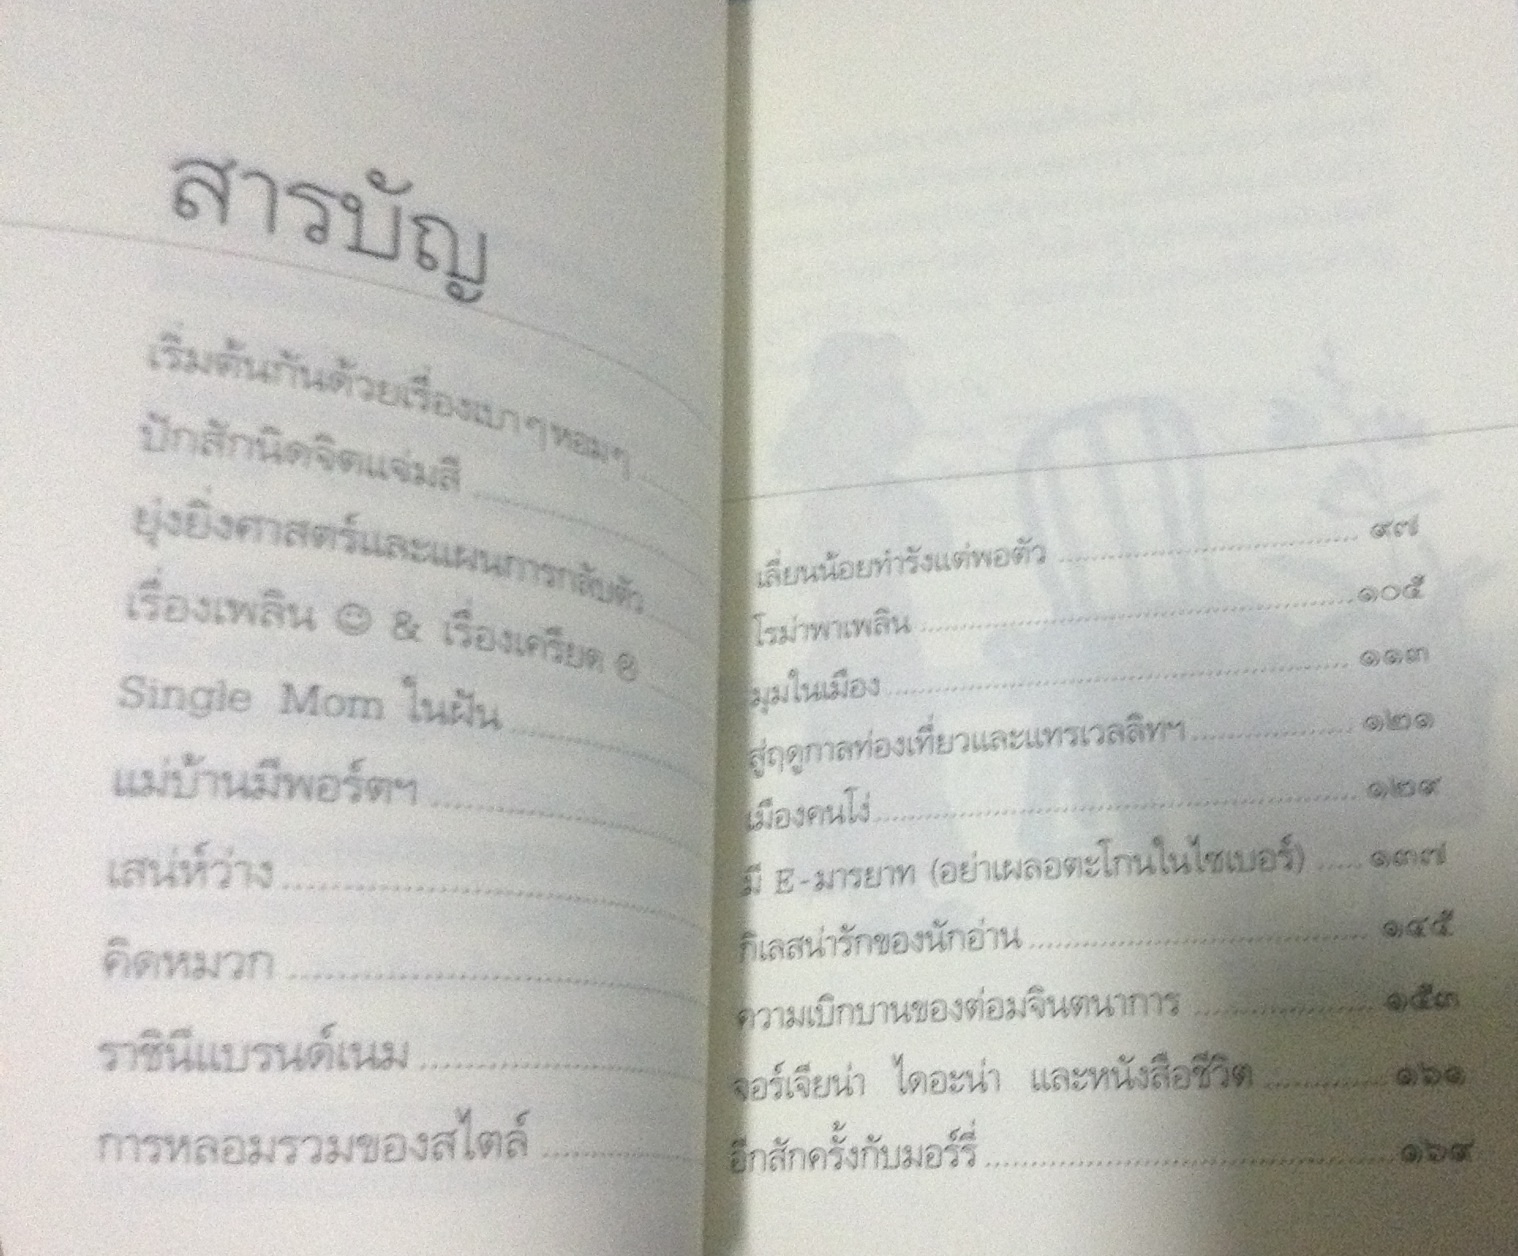 สารบัญ
เริ่มต้นกันด้วยเรื่องเบาๆ หอมๆ
ปักสักนิดจิตแจ่มสี
ยุ่งยิ่งศาสตร์และแผนการกลับตัว
เรื่องเพลิน ☺ & เรื่องเครียด ☹
Single Mom ในฝัน
แม่บ้านมีพอร์ตฯ
เสน่ห์ว่าง
คิดหมวก
ราชินีแบรนด์เนม
การหลอมรวมของสไตล์
เลี่ยนน้อยทำรังแต่พอตัว ๙๗
โรม่าพาเพลิน ๑๐๕
มุมในเมือง ๑๑๓
สู่ฤดูกาลท่องเที่ยวและแทรเวลลิทฯ ๑๒๑
เมืองคนโง่ ๑๒๙
มี E-มารยาท (อย่าเผลอตะโกนในไซเบอร์) ๑๓๗
กิเลสน่ารักของนักอ่าน ๑๔๕
ความเบิกบานของต่อมจินตนาการ ๑๕๓
จอร์เจียน่า ไดอะน่า และหนังสือชีวิต ๑๖๑
อีกสักครั้งกับมอร์รี่ ๑๖๙